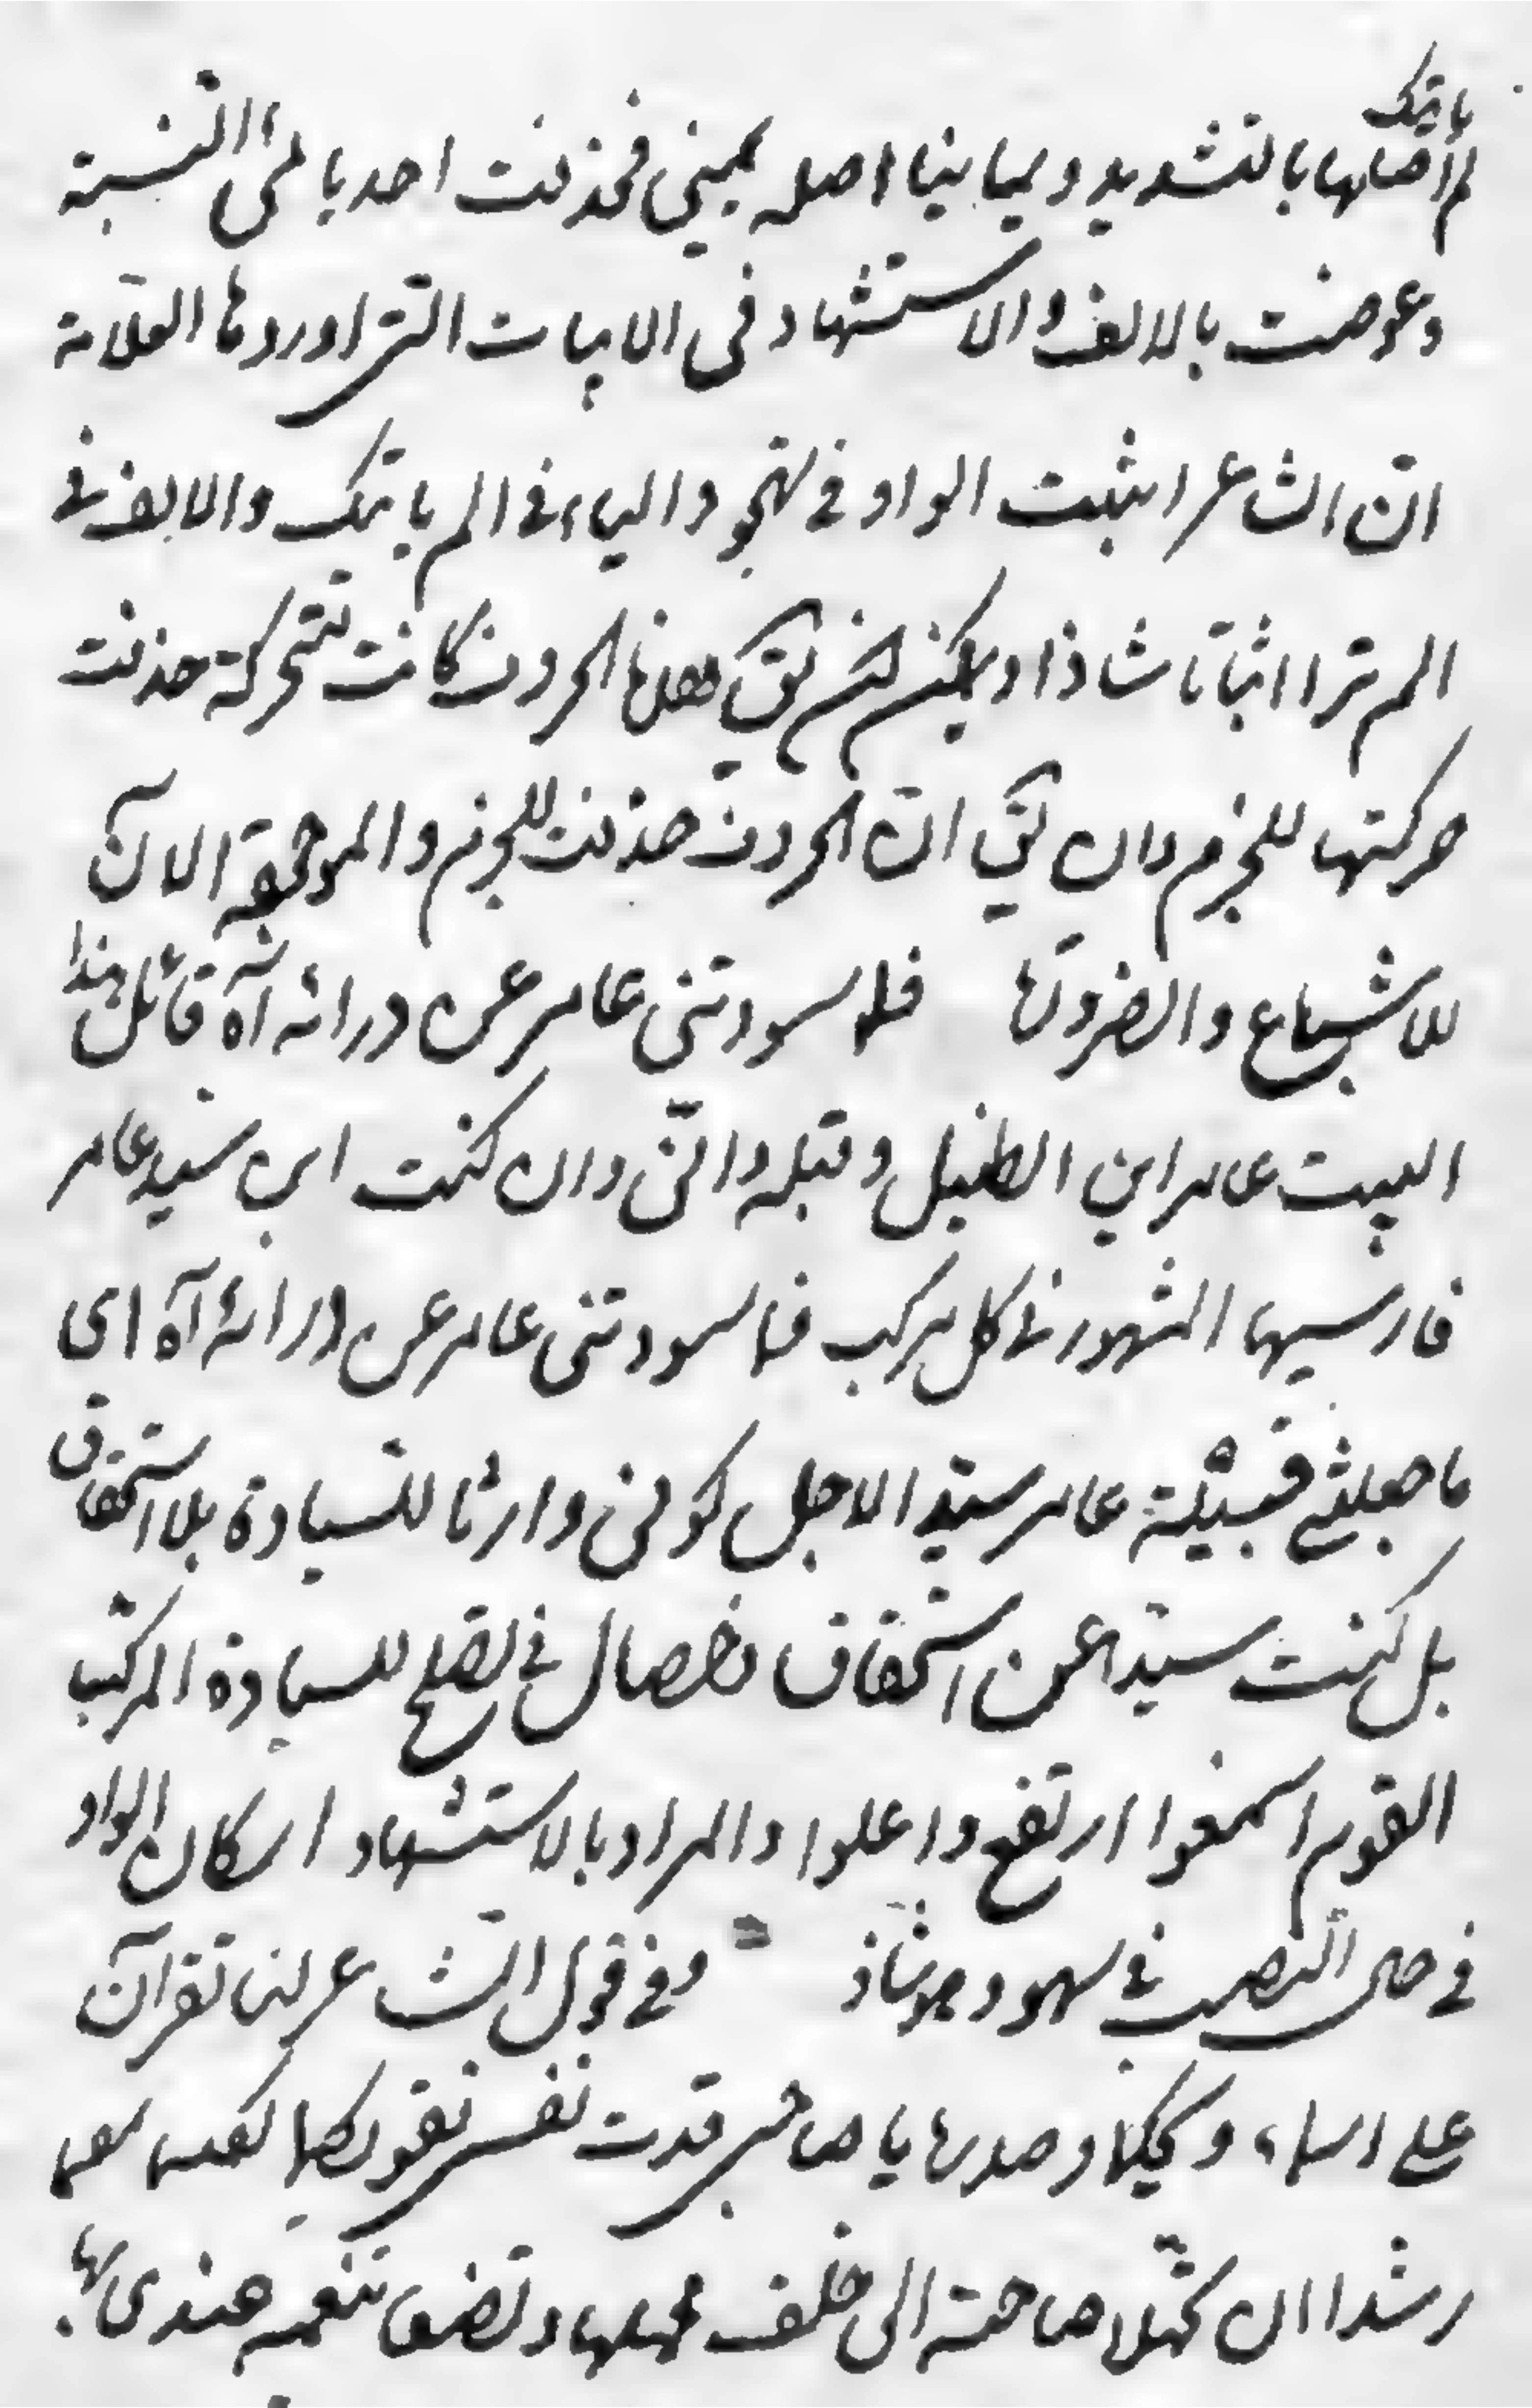 ياتيك
لم اصلها بالتشديد ويمانيا اصله يمينى فحذفت احد يا ئى النسبة
وعوضت بالالف والاستشهاد فى الابيات التى اوردها العلامة
انّ الشاعر اثبت الواو فى تهجو والياء فى الم ياتيك والالف فى
الم ترا اثباتا شاذا ويمكن ان يق هذه الحروف كانت متحركة حذفت
حركتها للجزم وان يق انّ الحروف حذفت للجزم والموجودة الآن
للاشباع والضرورة فما سودتنى عامر عن وراثه آه قائل هذا
البيت عامر ابن الطفيل وقبله وانّى وان كنت ابن سيد عامر
فارسيها المشهور فى كل مركب فما سودتنى عامر عن وراثه آه اى
ما جعلنى قبيلة عامر سيّدا لاجل كونى وارثا للسيادة بلا استحقاق
بل كنت سيّدا عن استحقاق خصال فى تصلح للسيادة المركب
القوم اسمعوا ارتفع واعلوا والمراد بالاستشهاد اسكان الواو
فى حال النصب فى سهو وهو شاذ وفى قول الشاعر لنا تقرآن
على اسماء ويحكما وصدرها يا صاحبى فدت نفسى نفوسكما
رشدا ان تحملا حاجة الى خلف محملها وتصنعا نعمة عندى بها